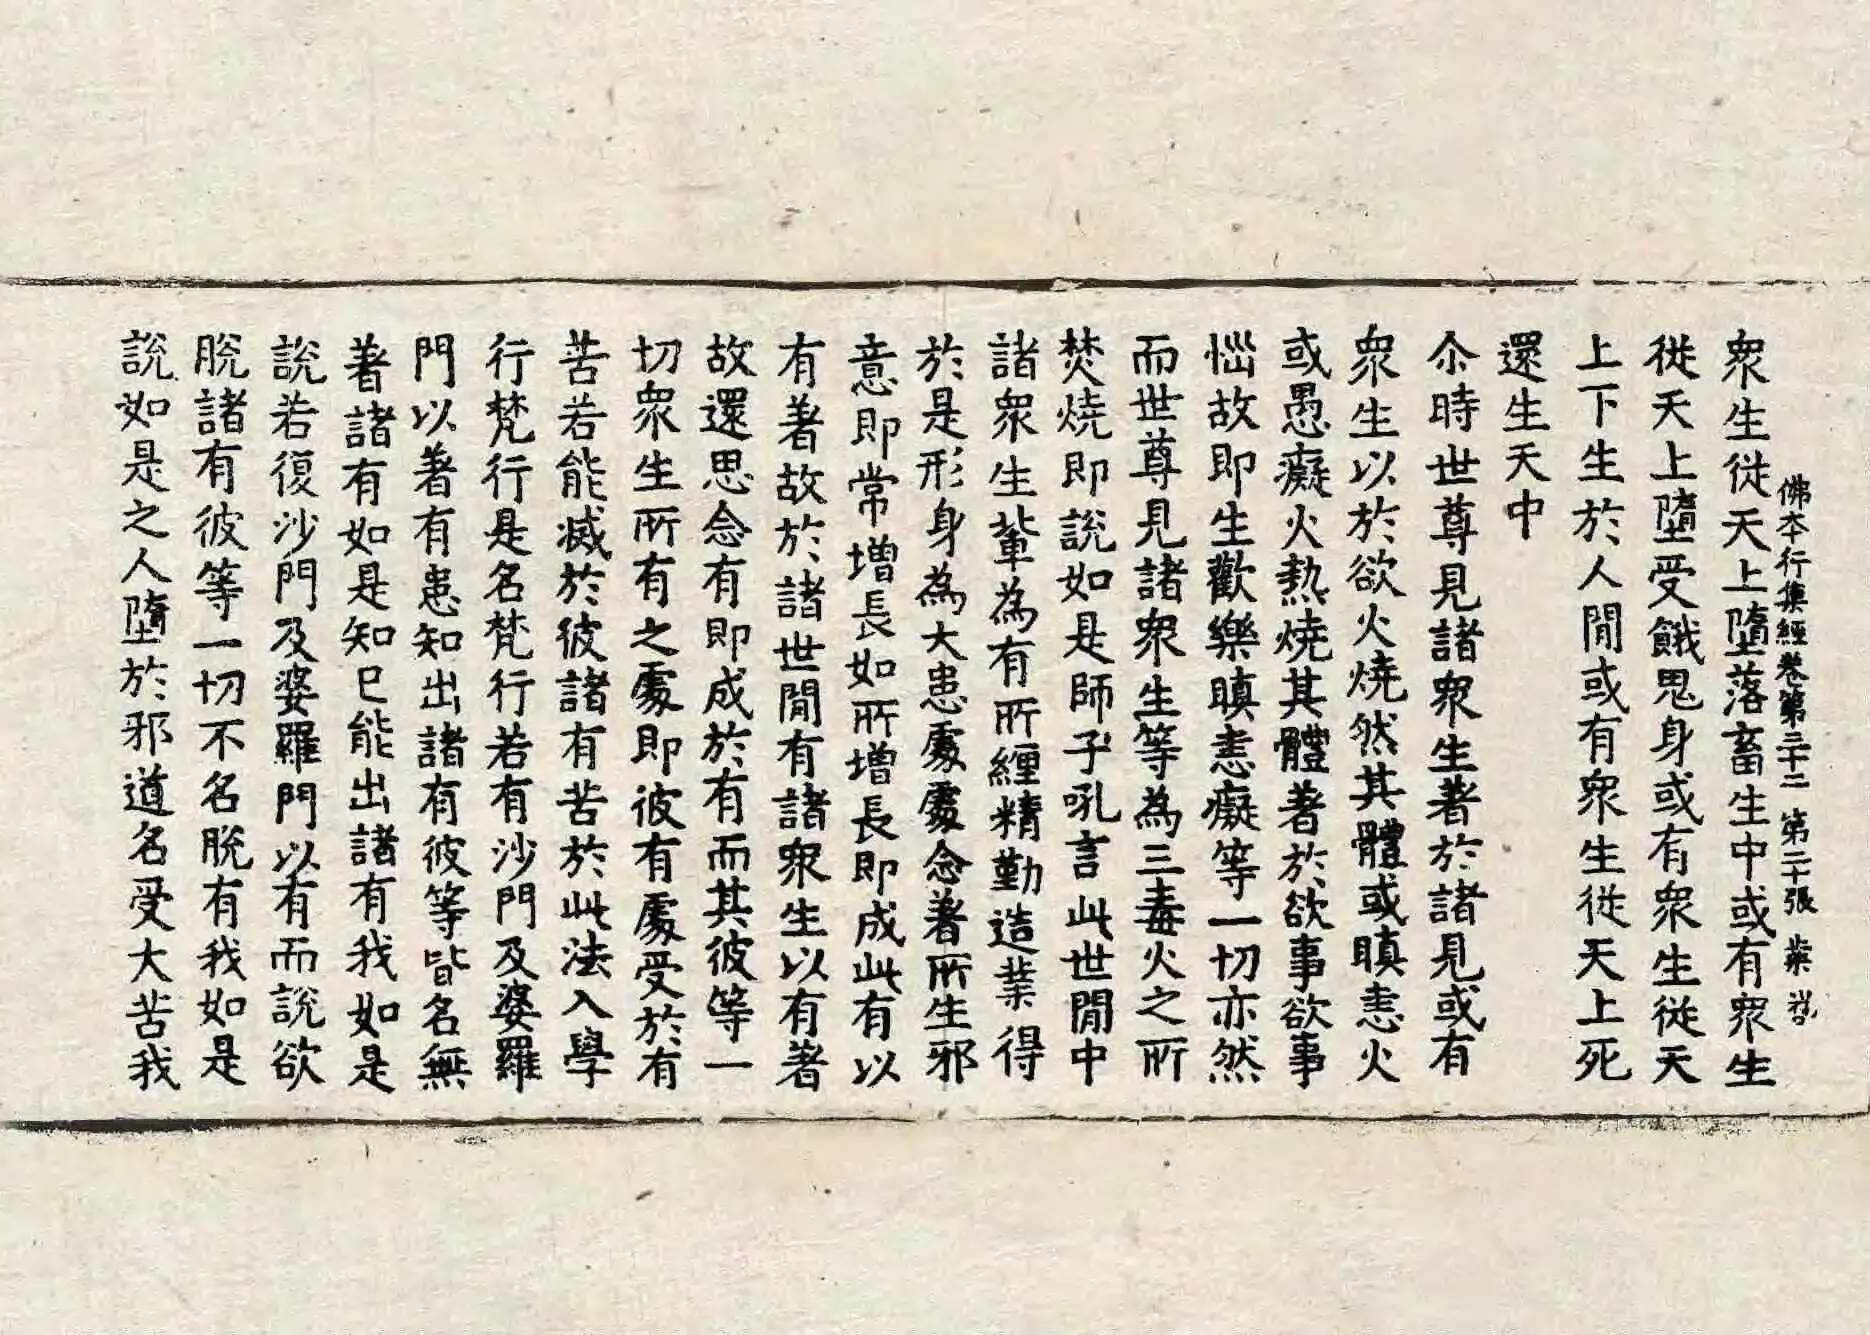 衆生從天上墮落畜生中或有衆生
佛本行集經卷第三十二 第二十張 業
從天上墮受餓鬼身或有衆生從天
上下生於人閒或有衆生從天上死
還生天中
尒時世尊見諸衆生著於諸見或有
衆生以於欲火燒然其體或瞋恚火
或愚癡火熱燒其體著於欲事欲事
惱故即生歡樂瞋恚癡等一切亦然
而世尊見諸衆生等為三毒火之所
焚燒即說如是師子吼言此世閒中
諸衆生輩為有所纏精勤造業得
於是形身為大患處處念著所生邪
意即常增長如所增長即成此有以
有著故於諸世閒有諸衆生以有著
故還思念有即成於有而其彼等一
切衆生所有之處即彼有處受於有
苦若能滅於彼諸有苦於此法入學
行梵行是名梵行若有沙門及婆羅
門以著有患知出諸有彼等皆名無
著諸有如是知已能出諸有我如是
說若復沙門及婆羅門以有而說欲
脫諸有彼等一切不名脫有我如是
說如是之人墮於邪道名受大苦我